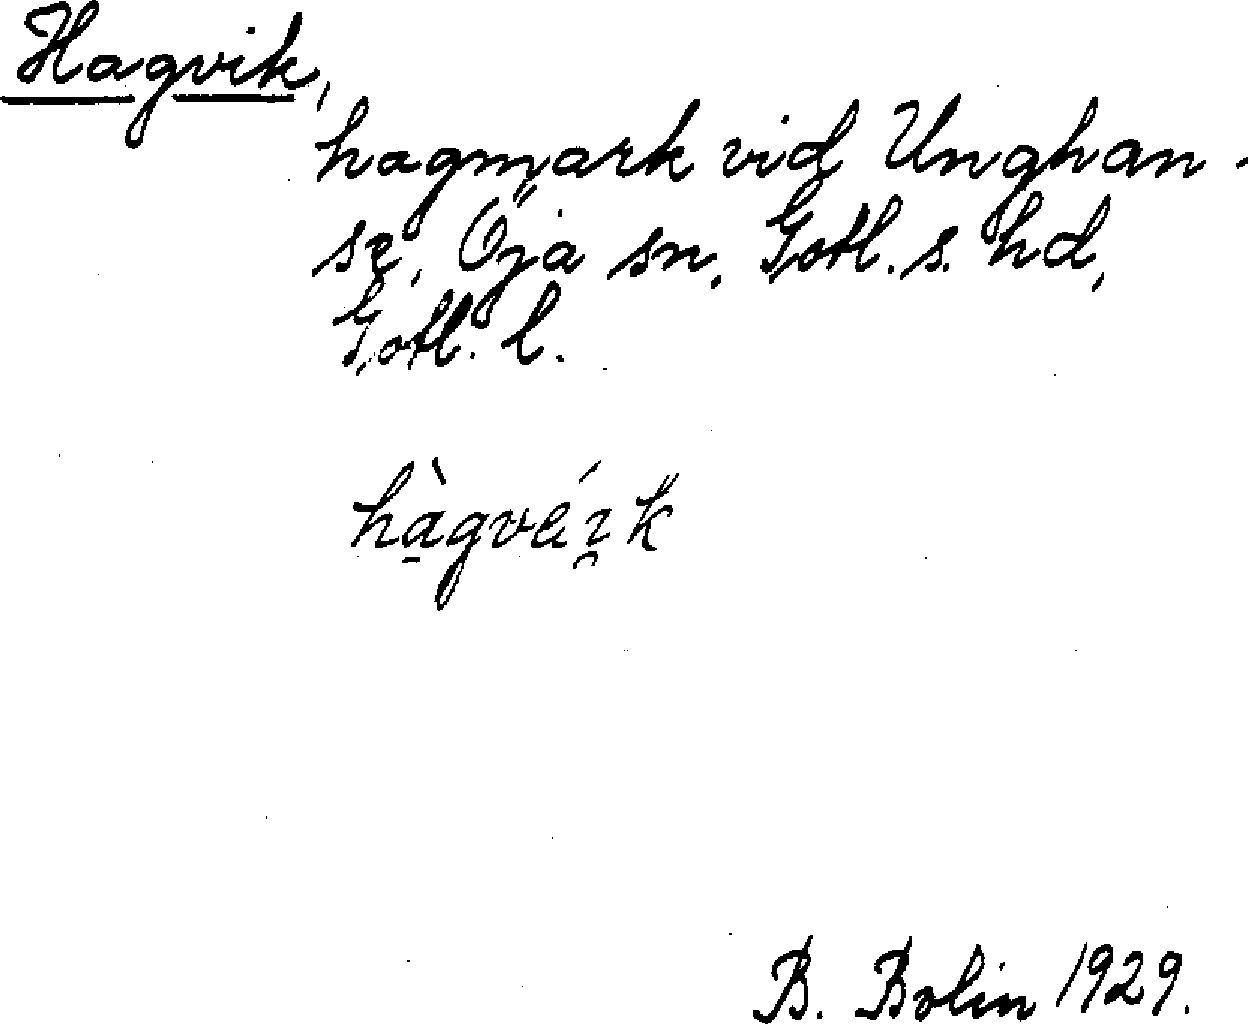 Hagvik,
hagmark vid Unghan-
se, Öja sn, Gotl. s. hd,
Gotl. l.
hàgvéık
B. Bolin 1929.